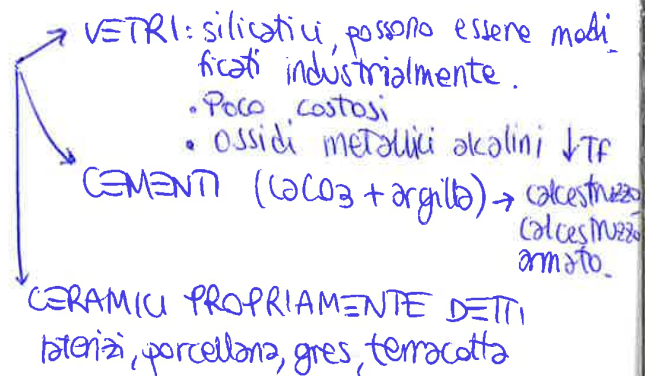 VETRI: silicatici, possono essere modi_
ficati industrialmente.
• Poco costosi
• Ossidi metallici alcalini ↓Tf
CEMENTI (CaCO3 + argilla) → calcestruzzo
calcestruzzo
armato_
CERAMICI PROPRIAMENTE DETTI
laterizi, porcellana, gres, terracotta